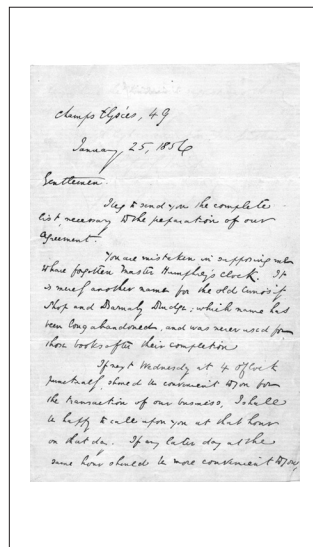 Champs Elysées, 49
January 25, 1856
Gentlemen.
I beg to send you the complete
list, necessary to the preparation of our
Agreement.
You are mistaken in supposing me
to have forgotten Master Humphrey's Clock. It
is merely another name for the Old Curiosity
Shop and Barnaby Rudge; which name has
been long abandoned, and was never used for
those books after their completion
If next Wednesday at 4 o'Clock
punctually, should be convenient to you for
the transaction of our business, I shall
be happy to call upon you at that hour
on that day. If any later day at the
same hour should be more convenient to you,